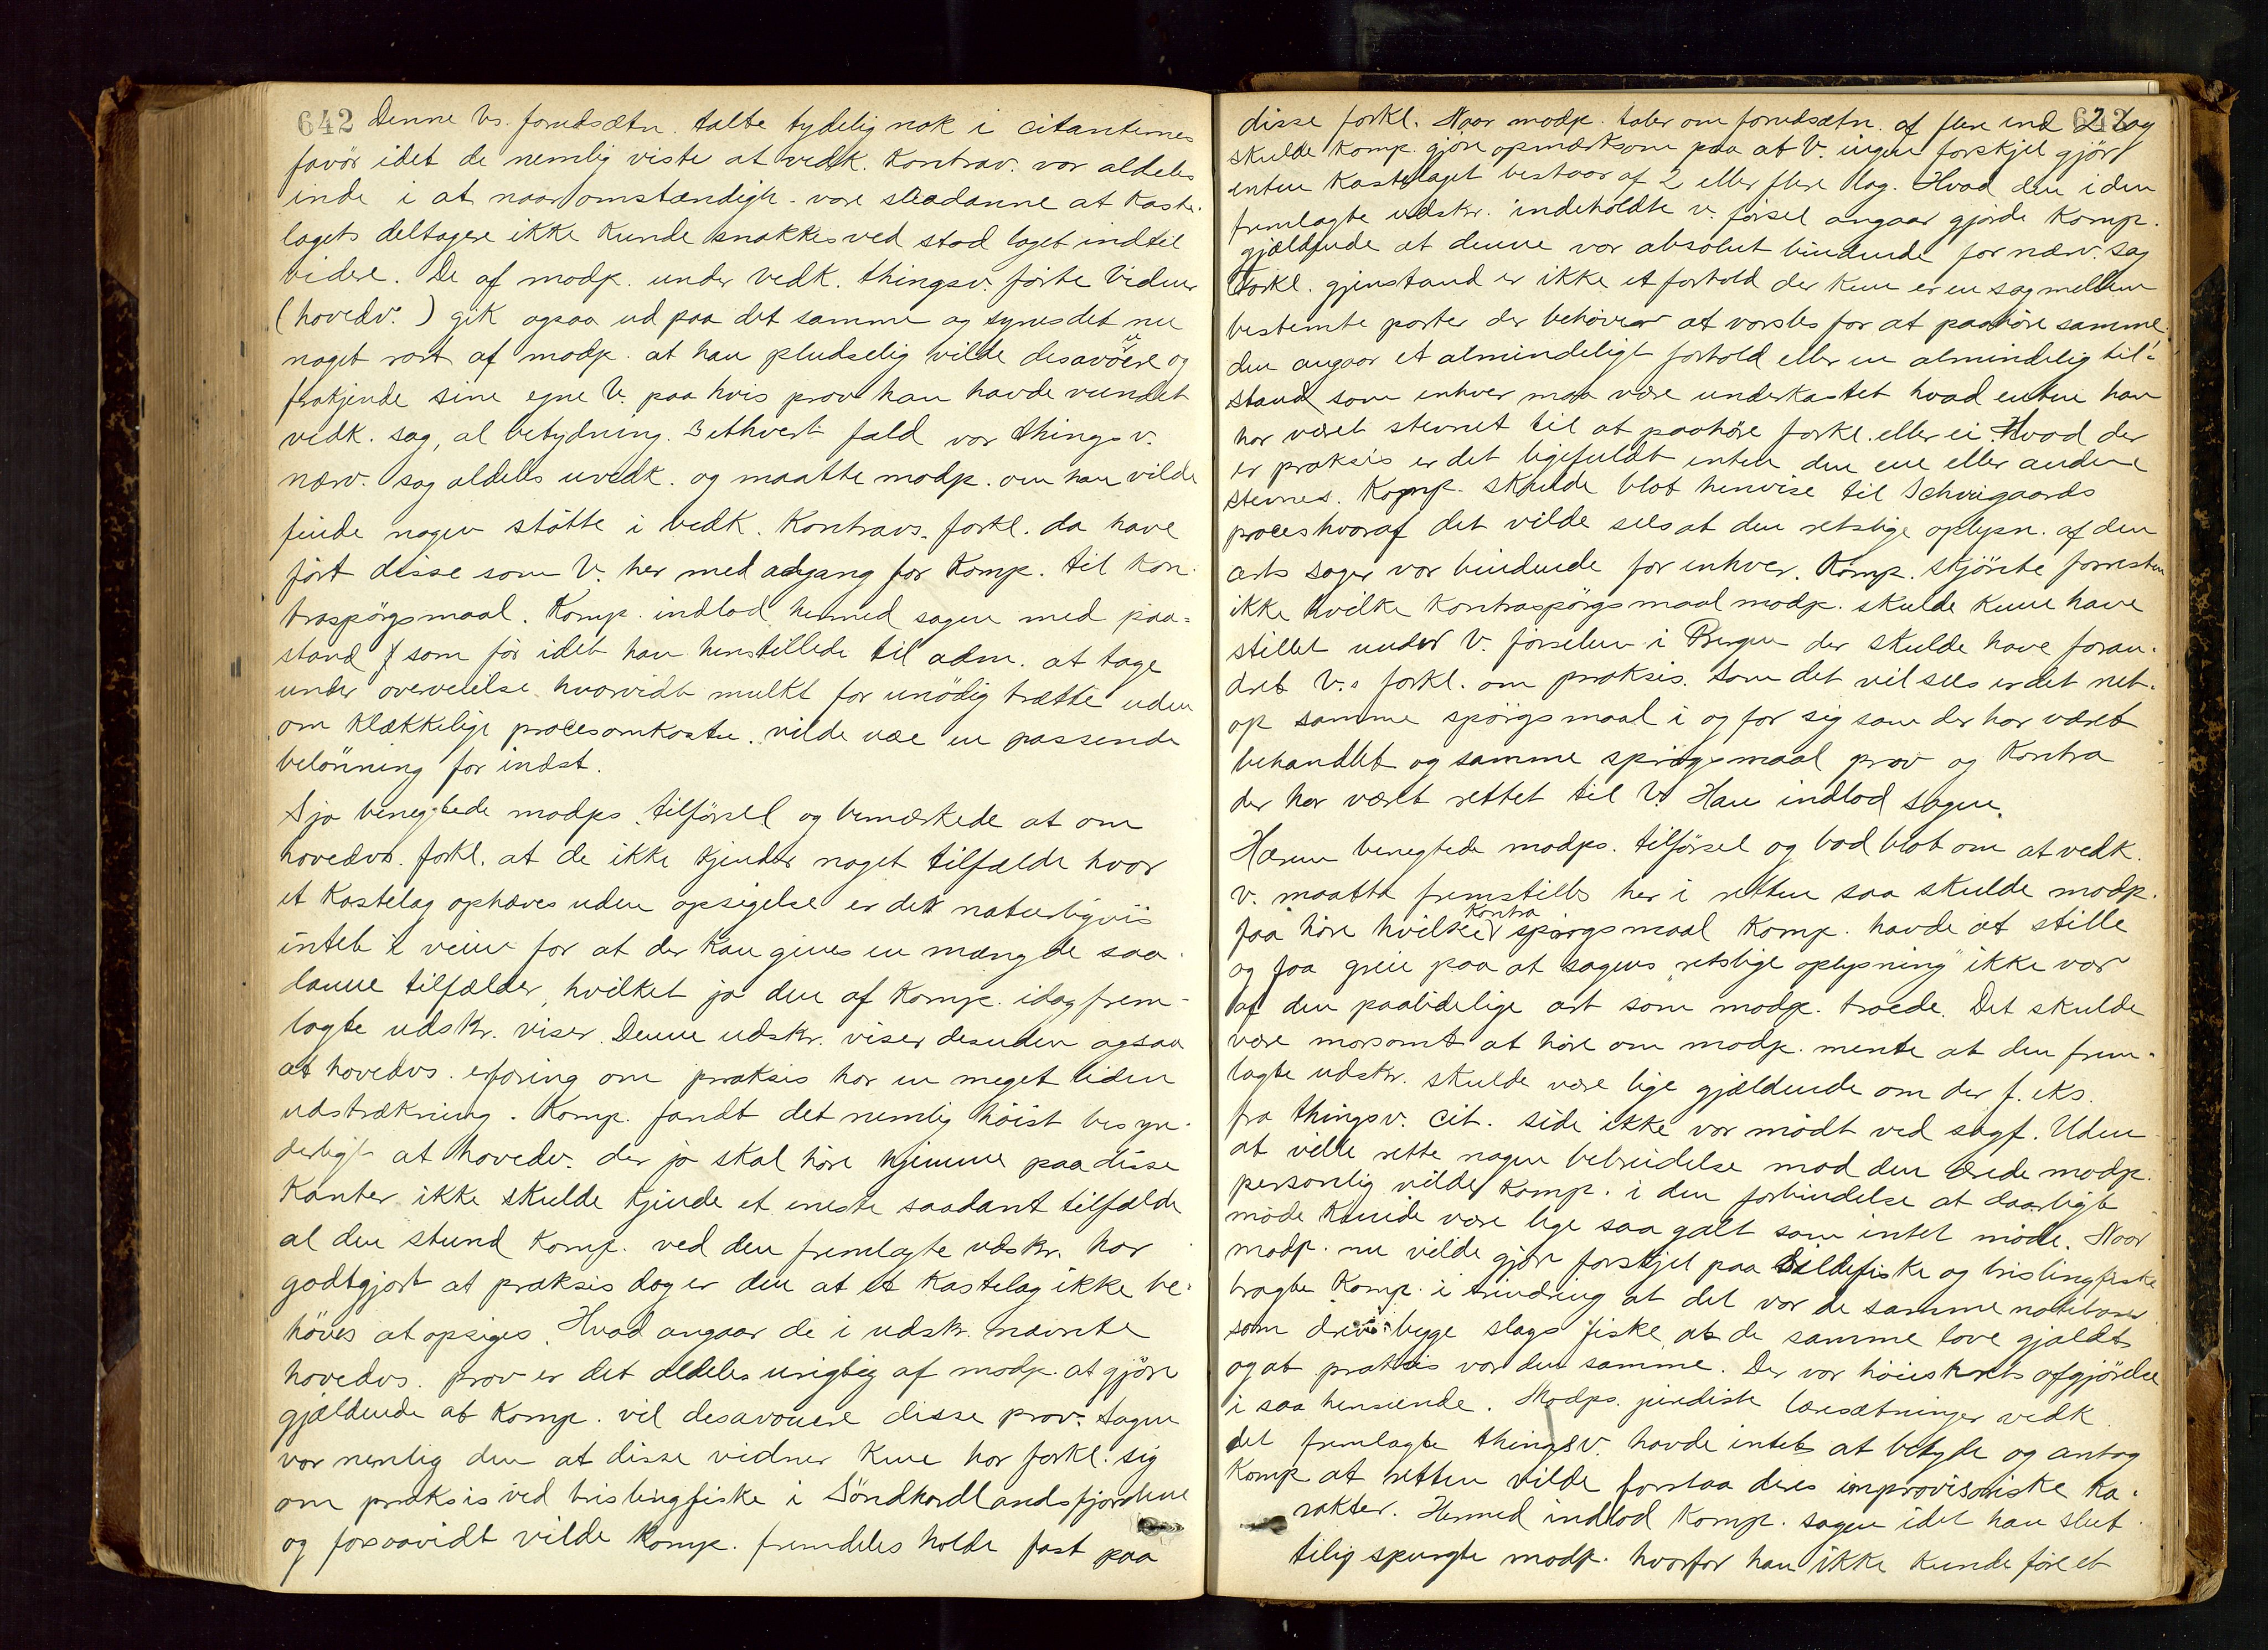 642 Denne Vs. forudsætn. talte tydelig nok i citanternes
favör idet de nemlig viste at vedk. Kontrav. var aldeles
inde i at naar omstændigh. vare saadanne at Kaste-
lagets deltagere ikke kunde snakkes ved stod laget indtil
videre. De af modp. under vedk. thingsv. förte Vidner
(hovedv.) gik ogsaa ud paa det samme og synes det nu
noget rart af modp. at han pludselig vilde desavouere og
frakjende sine egne V. paa hvis prov han havde vundet
vedk. sag, al betydning. I ethvert fald var thingsv.
nærv. sag aldeles uvedk. og maatte modp. om han vilde
finde nogen stötte i vedk. Kontravs. forkl. da have
fört disse som V. her med adgang for Komp. til Kon-
traspörgsmaal. Komp. indlod hermed sagen med paa-
stand som för idet han henstillede til adm. at tage
under overveielse hvorvidt mulkt for unödig trætte uden
om klækkelige procesomkostn. vilde være en passende
belönning for indst.
Sjo benegtede modps. tilförsel og bemærkede at om
hovedvs. forkl. at de ikke kjender noget tilfælde hvor
et Kastelag ophæves uden opsigelse er det naturligviis
intet i veien for at der kan gives en mængde saa-
danne tilfælder, hvilket jo den af Komp. idag frem-
lagte udskr. viser. Denne udskr. viser desuden ogsaa
at hovedvs. erfaring om praksis har en meget liden
udstrækning. Komp. fandt det nemlig höist besyn-
derligt at hovedv. der jo skal höre hjemme paa disse
Kanter ikke skulde kjende et eneste saadant tilfælde
al den stund Komp. ved den fremlagte udskr. har
godtgjort at praksis dog er den at et Kastelag ikke be-
höves at opsiges. Hvad angaar de i udskr. nævnte
hovedvs. prov er det aldeles urigtig af modp. at gjöre
gjældende at Komp. vil desavouere disse prov. Sagen
var nemlig den at disse vidner kun har forkl. sig
om praksis ved brislingfiske i Söndhordlandsfjordene
og forsaavidt vilde Komp. fremdeles holde fast paa
disse forkl. Naar modp. taler om forudsætn. af flere end 2 Lag
skulde Komp. gjöre opmærksom paa at V. ingen forskjel gjör
enten Kastelaget bestaar af 2 eller flere lag. Hvad den i den
fremlagte udskr. indeholdte v. försel angaar gjorde Komp.
gjældende at denne var absolut bindende for nærv. sag
Forkl. gjenstand er ikke et forhold der kun er en sag mellem
bestemte parter der behöver at varsles for at paahöre samme
den angaar et almindeligt forhold eller en almindelig til-
stand som enhver maa være underkastet hvad enten han
har været stevnet til at paahöre forkl. eller ei. Hvad der
er praksis er det ligefuldt enten den ene eller anden
stevnes. Komp. skulde blot henvise til Schweigaards
proces hvoraf det vilde sees at den retslige oplysn. af den
arts sager var bindende for enhver. Komp. skjönte forresten
ikke hvilke Kontraspörgsmaal modp. skulde kunne have
stillet under V. förselen i Bergen der skulde have foran-
dret V.s forkl. om praksis. Som det vil sees er det net-
op samme spörgsmaal i og for sig som der har været
behandlet og samme spörgsmaal prov og Kontra
der har været rettet til V. Han indlod sagen.
Hærem benegtede modps. tilförsel og bad blot om at vedk.
v. maatte fremstilles her i retten saa skulde modp.
faa höre hvilke Kontra spörgsmaal Komp. havde at stille
og faa greie paa at sagens "retslige oplysning" ikke var
af den paalidelige art som modp. troede. Det skulde
være morsomt at höre om modp. mente at den frem-
lagte udskr. skulde være lige gjældende om der f. eks.
fra thingsv. cit. side ikke var mödt ved sagf. Uden
at ville rette nogen bebreidelse mod den ærede modp.
personlig vilde Komp. i den forbindelse at daarligt
möde kunde være lige saa galt som intet möde. Naar
modp. nu vilde gjöre forskjel paa sildefiske og brislingfiske
bragte Komp. i erindring at det var de samme notebaser
som drev begge slags fiske, at de samme love gjaldt
og at praksis var den samme. Der var höiesterets afgjörelse
i saa henseende. Modps. juridiske læresætninger vedk.
det fremlagte thingsv. havde intet at betyde og antog
Komp. at retten vilde forstaa deres improvisoriske Ka-
rakter. Hermed indlod Komp. sagen idet han slut-
telig spurgte modp. hvorfor han ikke kunde före et